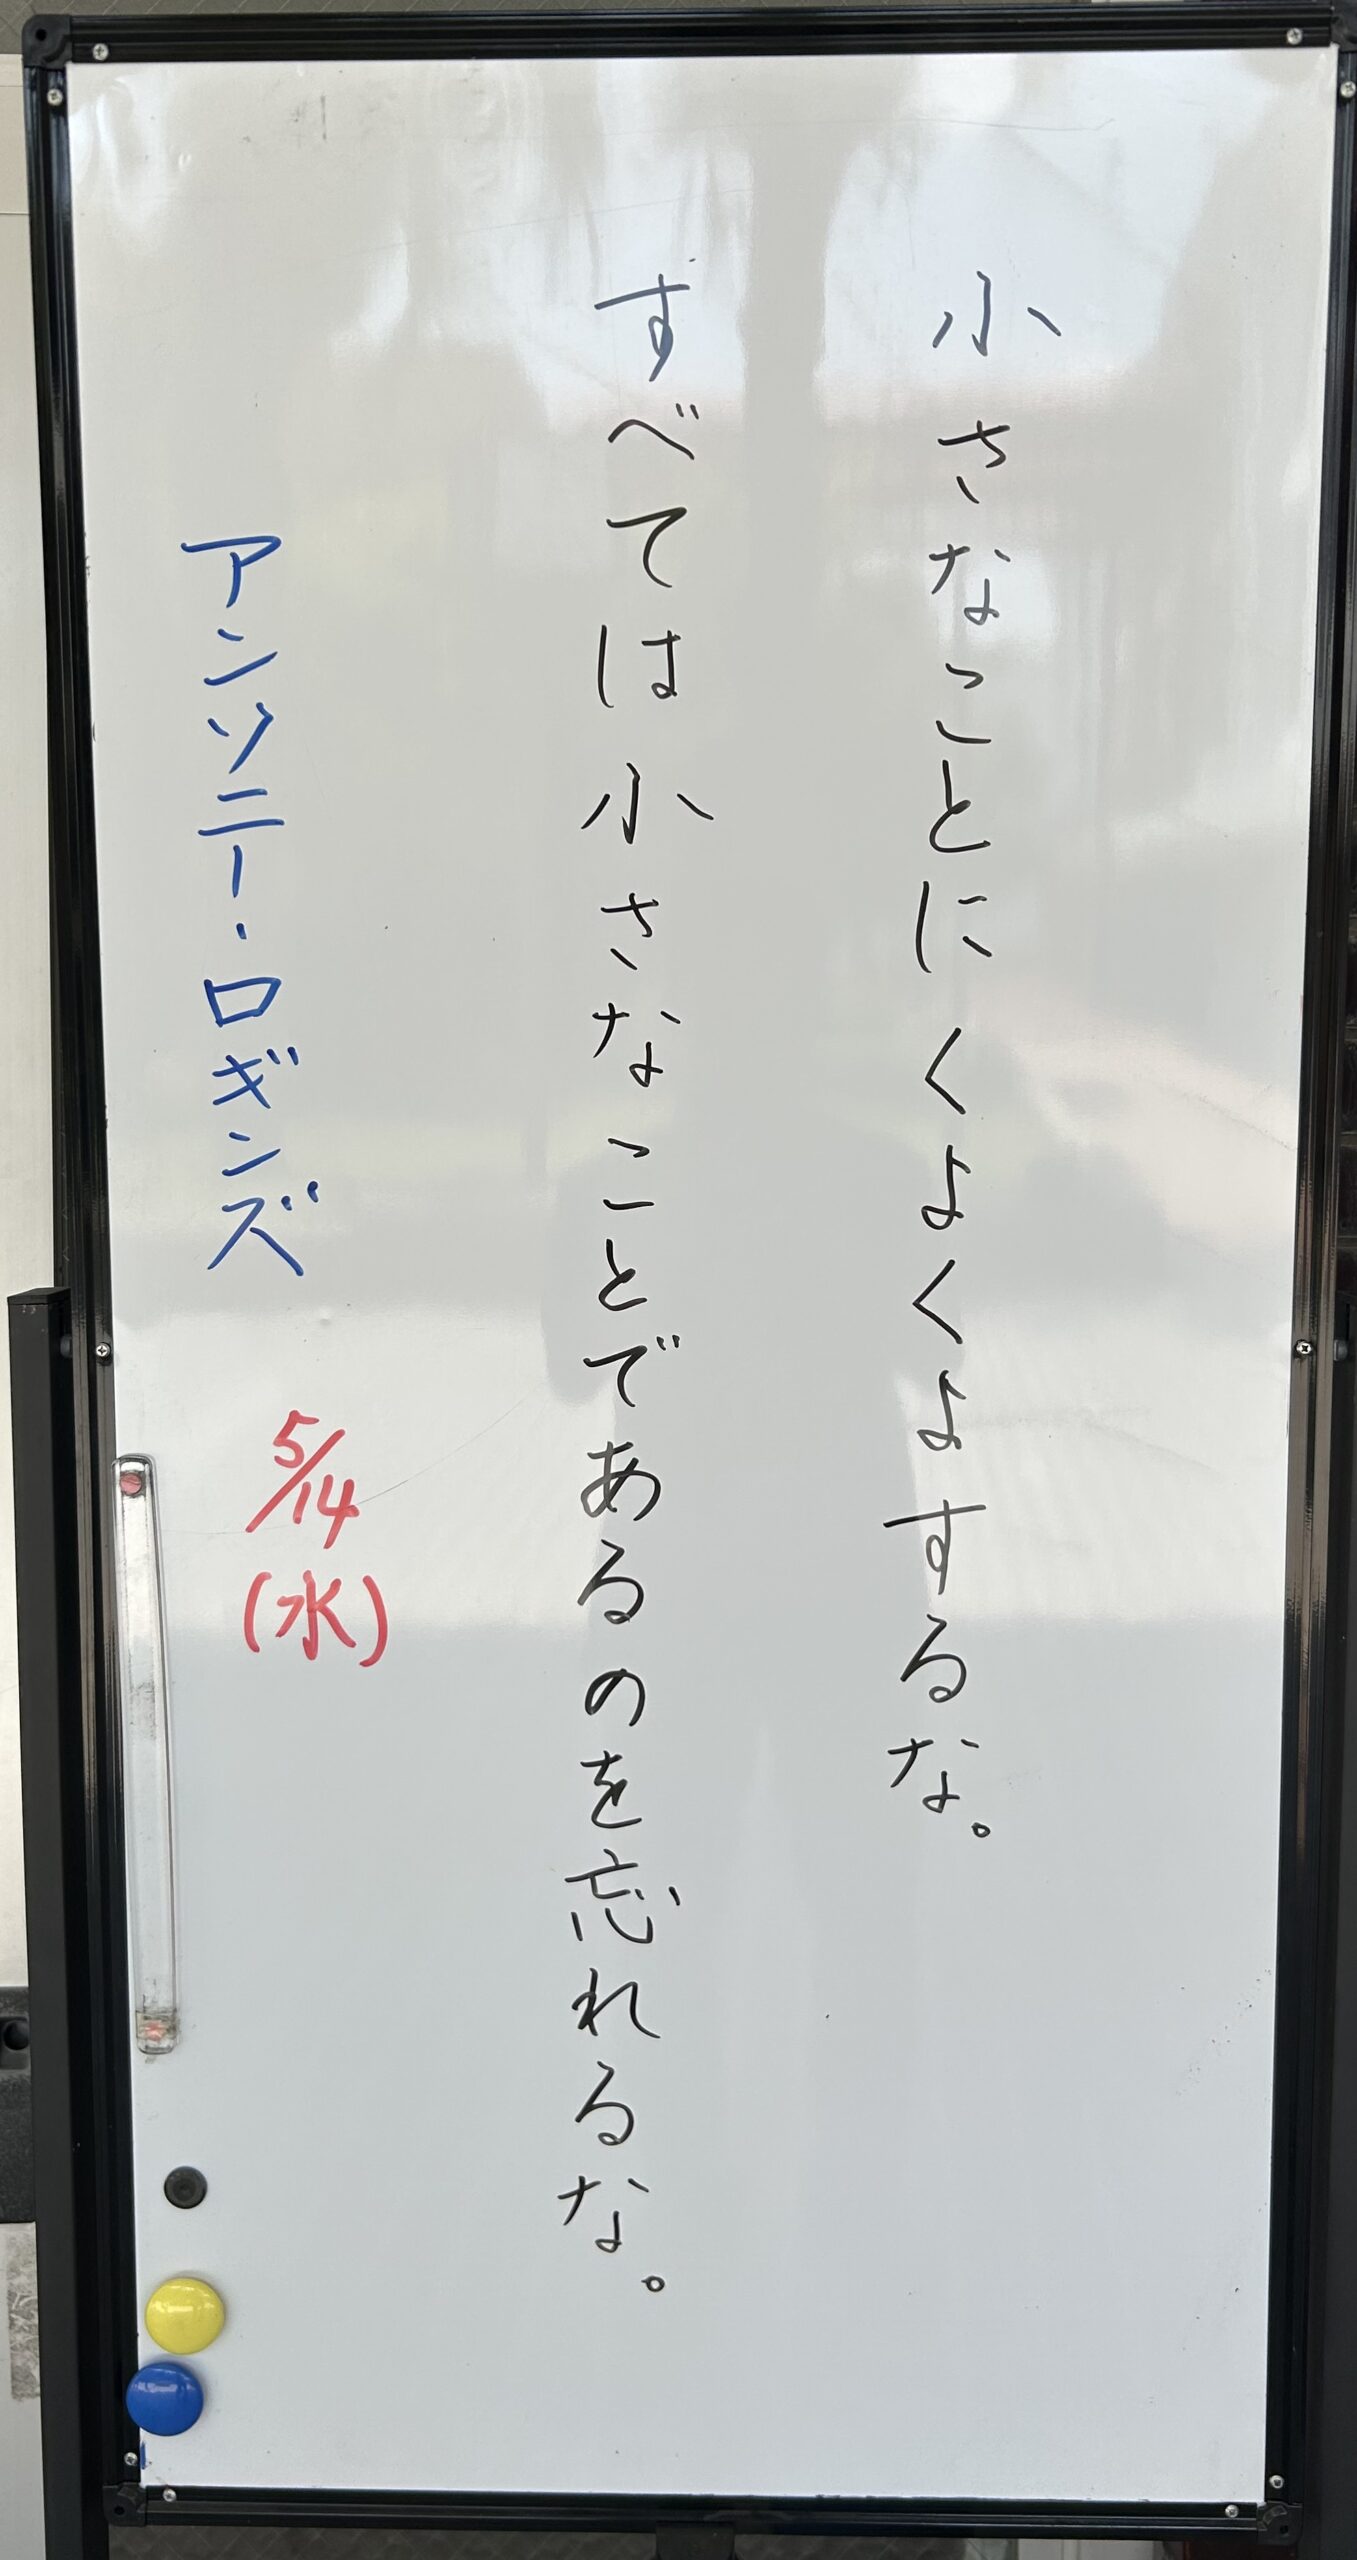 小さなことにくよくよするな。
すべては小さなことであるのを忘れるな。
アンソニー・ロギンズ
5/14
(水)